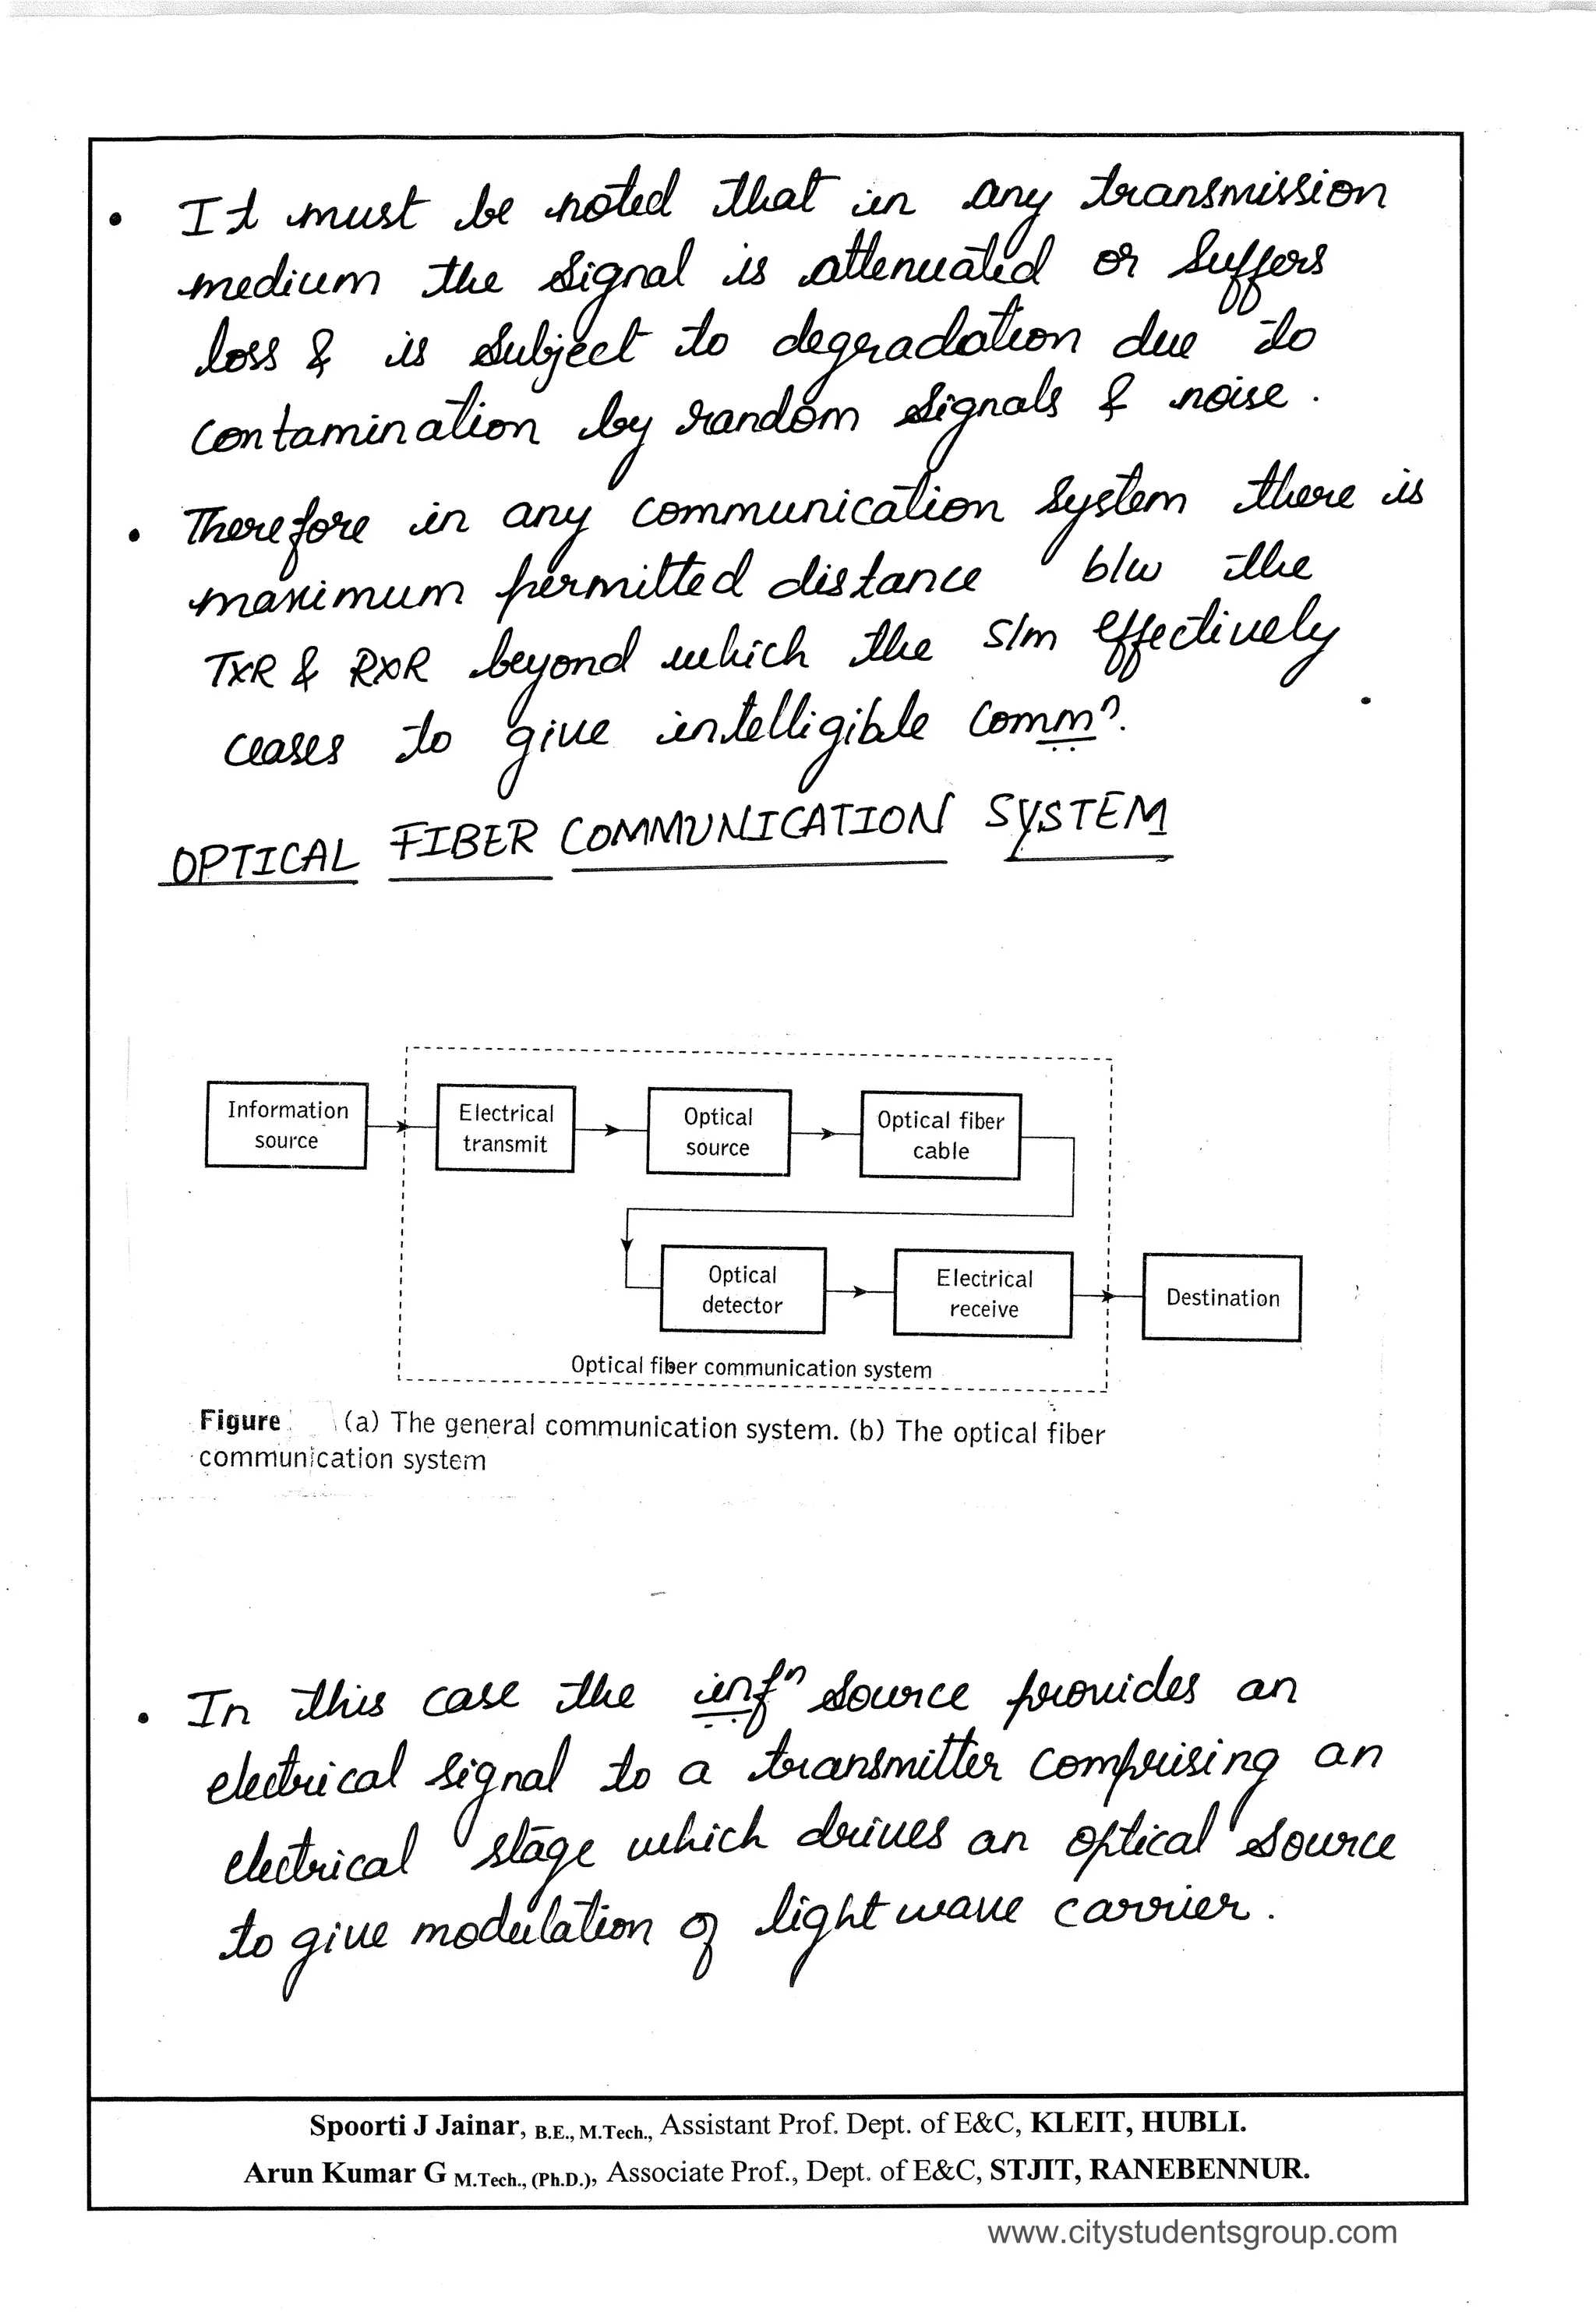 • It must be noted that in any transmission
medium the signal is attenuated or suffers
loss & is subject to degradation due to
contamination by random signals & noise.
• Therefore in any communication system there is
maximum permitted distance b/w the
TXR & RXR beyond which the s/m effectively
ceases to give intelligible commⁿ.
OPTICAL FIBER COMMUNICATION SYSTEM
Information
source
Electrical
transmit
Optical
source
Optical fiber
cable
Optical
detector
Electrical
receive
Destination
Optical fiber communication system
Figure (a) The general communication system. (b) The optical fiber
communication system
• In this case the infⁿ source provides an
electrical signal to a transmitter comprising an
electrical stage which drives an optical source
to give modulation of light wave carrier.
Spoorti J Jainar, B.E., M.Tech., Assistant Prof. Dept. of E&C, KLEIT, HUBLI.
Arun Kumar G M.Tech., (Ph.D.), Associate Prof., Dept. of E&C, STJIT, RANEBENNUR.
www.citystudentsgroup.com